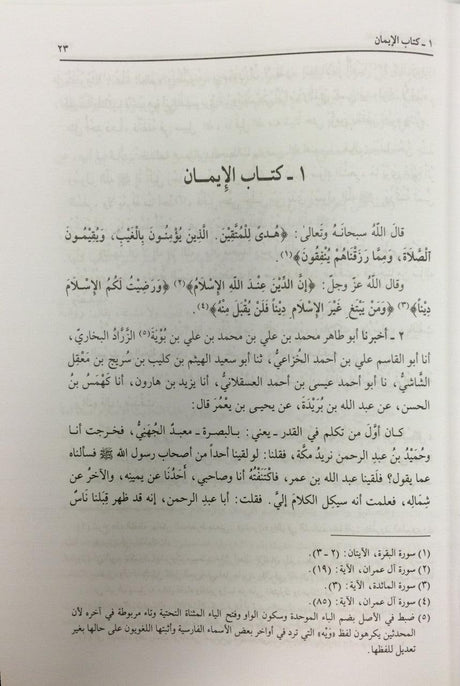 ١ - كتاب الإيمان
٢٣
١ - كتاب الإيمان
قالَ اللّهُ سبحانهُ وَتَعالىٰ: ﴿هُدىً لِلْمُتَّقِينَ. الَّذِينَ يُؤْمِنُونَ بِالْغَيْبِ، وَيُقِيمُونَ
ٱلصَّلاةَ، وَمِمَّا رَزَقْنَاهُمْ يُنْفِقُونَ﴾(١).
وقال اللّهُ عزّ وجلّ: ﴿إنَّ الدِّيْنَ عِنْدَ اللّهِ الإسْلامُ﴾(٢) ﴿وَرَضِيْتُ لَكُمُ الإسْلامَ
دِيْناً﴾(٣) ﴿وَمَنْ يَبْتَغِ غَيْرَ الإسْلامِ دِيْناً فَلَنْ يُقْبَلَ مِنْهُ﴾(٤).
٢ - أخبرنا أبو طاهر محمد بن علي بن محمد بن علي بن بُوْيَة(٥) الزَّرَّادُ البخاري،
أنا أبو القاسم علي بن أحمد الخُزاعيُّ، ثنا أبو سعيد الهيثم بن كليب بن سُريج بن مَعْقِل
الشَّاشيُّ، نا أبو أحمد عيسى بن أحمد العسقلانيُّ، أنا يزيد بن هارون، أنا كَهْمَسُ بنُ
الحسن، عن عبد الله بن بُرَيْدَةَ، عن يحيى بن يعْمُرَ قال:
كان أوَّلَ من تكلم في القدر - يعني: بالبصرة - معبدٌ الجُهَنيُّ، فخرجت أنا
وحُمَيْدُ بنُ عبدِ الرحمن نريدُ مكَّة، فقلنا: لو لقينا أحداً من أصحاب رسول الله ﷺ فسألناه
عما يقول؟ فلَقينا عبد الله بن عمر، فاكْتَنَفْتُهُ أنا وصاحبي، أَحَدُنَا عن يمينِه، والآخرُ عن
شِمَالِه، فعلمت أنه سيكِل الكلامَ إليَّ. فقلت: أبا عبدِ الرحمن، إنه قد ظهر قِبَلنا نَاسٌ
(١) سورة البقرة، الآيتان: (٢ - ٣).
(٢) سورة آل عمران، الآية: (١٩).
(٣) سورة المائدة، الآية: (٣).
(٤) سورة آل عمران، الآية: (٨٥).
(٥) ضبط في الأصل بضم الباء الموحدة وسكون الواو وفتح الياء المثناة التحتية وتاء مربوطة في آخره لأن
المحدثين يكرهون لفظ «وَيْه» التي ترد في أواخر بعض الأسماء الفارسية وأثبتها اللغويون على حالها بغير
تعديل للفظها.